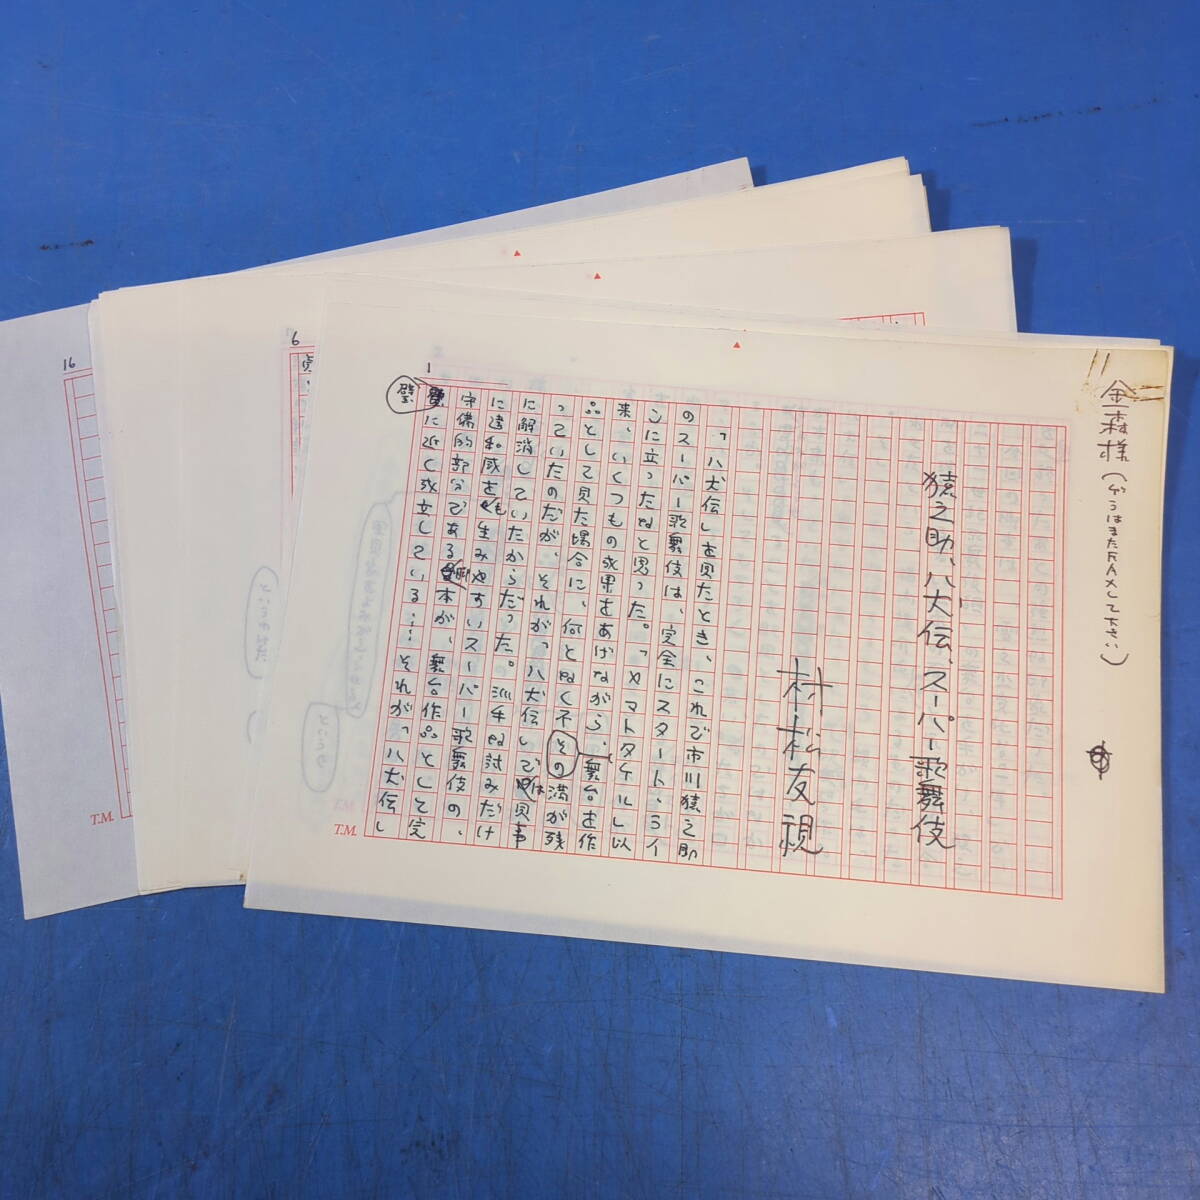 金森様(ゲラはまたFAXして下さい)
猿之助、八犬伝、スーパー歌舞伎
村松友視
「八犬伝」を見たとき、これで市川猿之助
のスーパー歌舞伎は、完全にスタート・ライ
ンに立ったなと思った。「ヤマトタケル」以
来、いくつもの成果をあげながら、舞台を作
品として見た場合に、何となく不満が残
その
っていたのだが、それが「八犬伝」では見事
に解消していたからだった。派手な試みだけ
に違和感をも生みやすいスーパー歌舞伎の、
守備的部分である脚本が、舞台作品として完
璧に近く成立している……それが「八犬伝」
璧
1
6
16
T.M.
T.M.